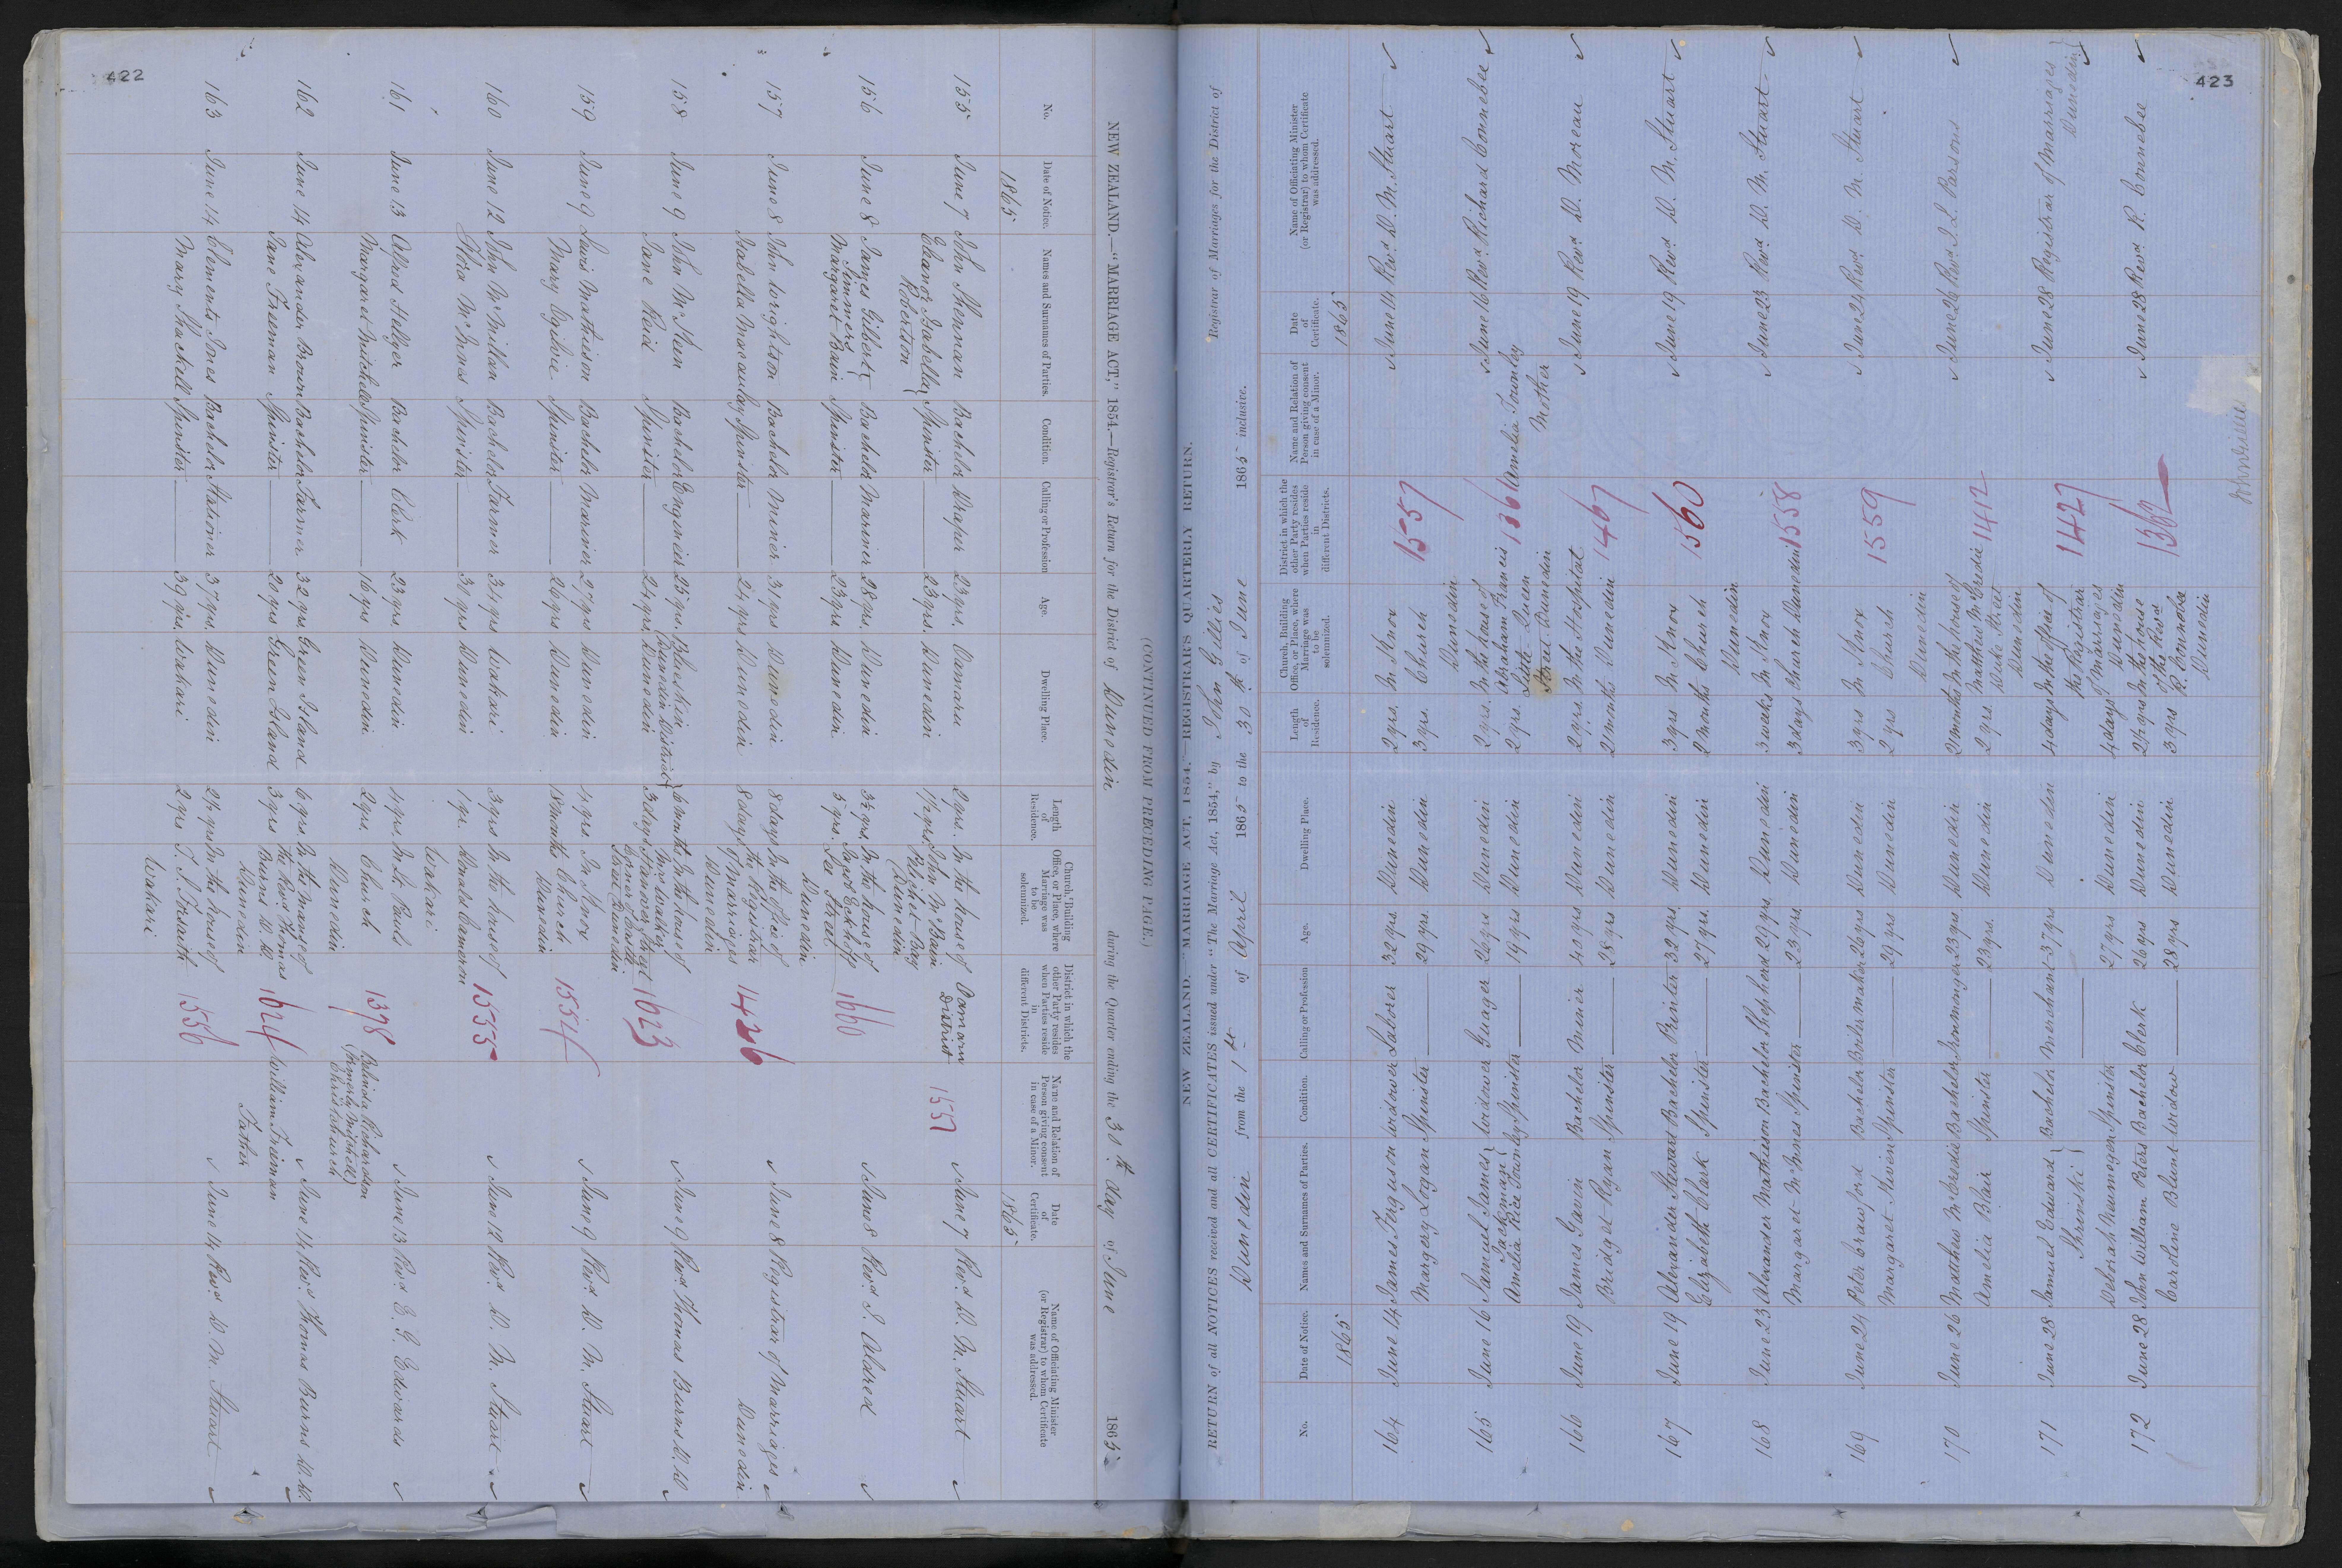 422
NEW ZEALAND.—"MARRIAGE ACT," 1854.—Registrar's Return for the District of Dunedin during the Quarter ending the 30th day of June 1865
(CONTINUED FROM PRECEDING PAGE.)
No. Date of Notice. Names and Surnames of Parties. Condition. Calling or Profession Age. Dwelling Place. Length of Residence. Church, Building Office, or Place, where Marriage was to be solemnized. District in which the other Party resides when Parties reside in different Districts. Name and Relation of Person giving consent in case of a Minor. Date of Certificate. Name of Officiating Minister (or Registrar) to whom Certificate was addressed.
1865 1865
155 June 7 John Bachelor Draper 23 yrs. Oamaru 2 yrs. In the house of Oamaru District 1557 June 7 Revd. D. M. Stuart
Eleanor Isabella Robertson Spinster 23 yrs. Dunedin 1½ yrs John McBain Pelichet Bay Dunedin
156 June 8 James Gilbert Simmers Bachelor Mariner 28 yrs. Dunedin 3½ yrs. In the house of 1660 June 8 Revd. J. Aldred
Margaret Bain Spinster 23 yrs. Dunedin 5 yrs. Jacob Eckhoff Lees Street Dunedin
157 June 8 John Wrighton Bachelor Miner 31 yrs Dunedin 8 days In the office of 1426 June 8 Registrar of Marriages Dunedin
Isabella Macaulay Spinster 24 yrs Dunedin 8 days the Registrar of Marriages Dunedin
158 June 9 John McKeen Bachelor Engineer 25 yrs. Blueskin Dunedin District 6 months In the house of 1623 June 9 Revd. Thomas Burns D.D.
Jane Reid Spinster 24 yrs. Dunedin 3 days Mrs Walker Hanover Street Corner of Castle Street Dunedin
159 June 9 Lewis Mathison Bachelor Mariner 27 yrs Dunedin 4 yrs In Knox 1554 June 9 Revd. D. M. Stuart
Mary Ogilvie Spinster 26 yrs Dunedin 18 months Church Dunedin
160 June 12 John McMillan Bachelor Farmer 34 yrs Wakari 3 yrs In the house of 1555 June 12 Revd. D. M. Stuart
Flora McInnis Spinster 30 yrs Dunedin 1 yr. Donald Cameron Wakari
161 June 13 Alfred Hellyer Bachelor Clerk 23 yrs. Dunedin 4 yrs. In St. Pauls 1378 Belinda Richardson June 13 Revd. E. G. Edwards
Margaret Mitchell Spinster 16 yrs Dunedin 2 yrs. Church Dunedin (formerly Mitchell) Christchurch
162 June 14 Alexander Brown Bachelor Farmer 32 yrs. Green Island 6 yrs. In the manse of 1624 William Freeman June 14 Revd. Thomas Burns D.D.
Jane Freeman Spinster 20 yrs Green Island 3 yrs the Rev. Thomas Burns D.D. Dunedin Father
163 June 14 Clements Ines Bachelor Stationer 37 yrs. Dunedin 2½ yrs In the house of 1556 June 14 Revd. D. M. Stuart
Mary Shackell Spinster 39 yrs. Wakari 2 yrs Wakari
423
NEW ZEALAND.—"MARRIAGE ACT, 1854."—REGISTRAR'S QUARTERLY RETURN.
RETURN of all NOTICES received and all CERTIFICATES issued under "The Marriage Act, 1854," by John Gillies Registrar of Marriages for the District of
Dunedin from the 1st of April 1865 to the 30th of June 1865 inclusive.
No. Date of Notice. Names and Surnames of Parties. Condition. Calling or Profession Age. Dwelling Place. Length of Residence. Church, Building Office, or Place, where Marriage was to be solemnized. District in which the other Party resides when Parties reside in different Districts. Name and Relation of Person giving consent in case of a Minor. Date of Certificate. Name of Officiating Minister (or Registrar) to whom Certificate was addressed.
1865 1865
164 June 14 James Ferguson Widower Laborer 32 yrs. Dunedin 2 yrs. In Knox 1557 June 14 Revd. D. M. Stuart
Margery Logan Spinster 29 yrs. Dunedin 3 yrs. Church Dunedin
165 June 16 Samuel James Jackman Widower Guager 26 yrs. Dunedin 2 yrs. In the house of Abraham Francis 1361 Amelia Townley June 16 Revd. Richard Connebee
Amelia Rice Townley Spinster 19 yrs Dunedin 2 yrs. Little Queen Street Dunedin Mother
166 June 19 James Gavin Bachelor Miner 40 yrs Dunedin 2 yrs. In the Hospital 1467 June 19 Revd D. Moreau
Bridget Ryan Spinster 28 yrs Dunedin 2 months Dunedin
167 June 19 Alexander Stewart Bachelor Printer 32 yrs. Dunedin 3 yrs In Knox 1560 June 19 Revd. D. M. Stuart
Elizabeth Clark Spinster 27 yrs. Dunedin 2 months Church Dunedin
168 June 23 Alexander Mathieson Bachelor Shepherd 29 yrs. Dunedin 3 weeks In Knox 1558 June 23 Revd. D. M. Stuart
Margaret McInnes Spinster 23 yrs. Dunedin 3 days Church Dunedin
169 June 24 Peter Crawford Bachelor Boilermaker 26 yrs Dunedin 3 yrs In Knox 1559 June 24 Revd. D. M. Stuart
Margaret Given Spinster 29 yrs. Dunedin 2 yrs Church Dunedin
170 June 26 Mathew McCredie Bachelor Ironmonger 23 yrs. Dunedin 21 months In the house of 1412 June 26 Revd. J. L. Parsons
Amelia Blair Spinster 23 yrs. Dunedin 2 yrs. Matthew McCredie Duke Street Dunedin
171 June 28 Samuel Edward Shrinski Bachelor Merchant 37 yrs Dunedin 4 days In the office of 1427 June 28 Registrar of Marriages Dunedin
Deborah Neumegen Spinster 27 yrs. Dunedin 4 days the Registrar of Marriages Dunedin
172 June 28 John William Peters Bachelor Clerk 26 yrs Dunedin 2½ yrs In the house 1362 June 28 Revd. R. Connebee
Caroline Blunt Widow 28 yrs Dunedin 3 yrs of the Revd R. Connebee Dunedin